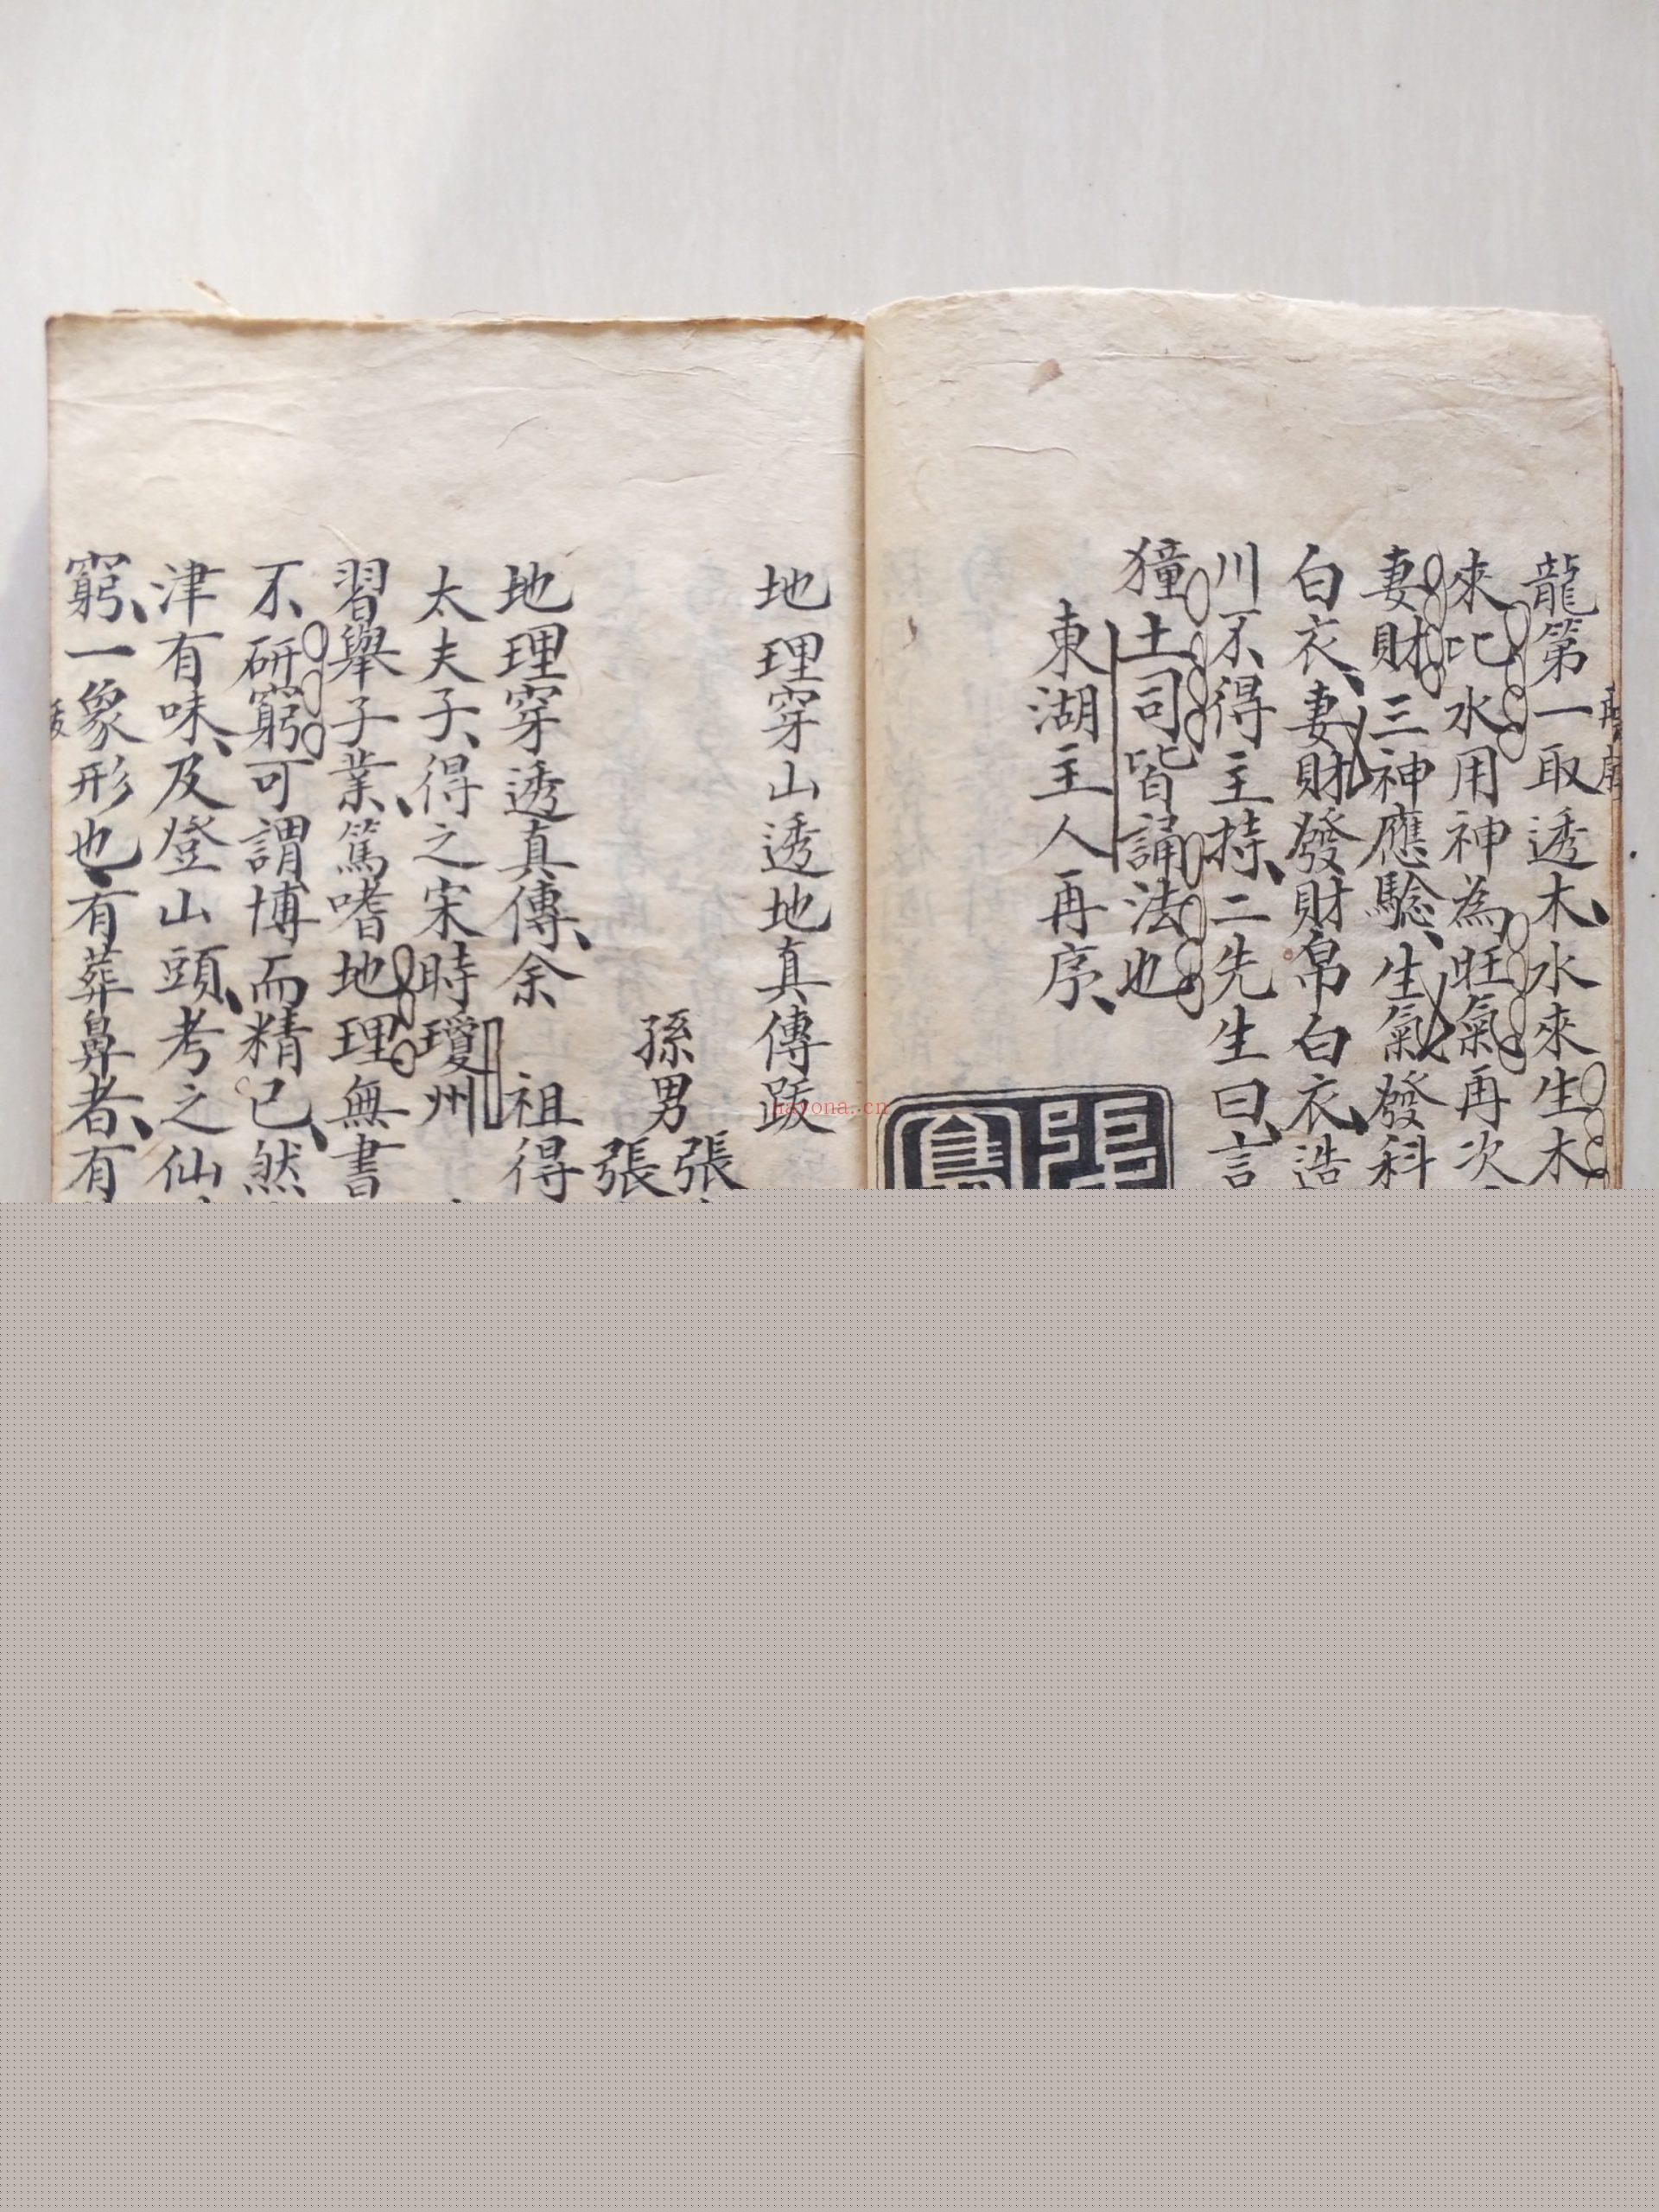 龍第一取透木水來生木
來比水用神為旺氣再次
妻財三神應驗生氣發科
白衣妻財發財帛白衣造
川不得主持二先生曰言
獞土司皆誦法也
東湖主人再序
地理穿山透地真傳跋
孫男
張
張
地理穿透真傳余 祖得
太夫子得之宋時瓊州
習舉子業篤嗜地理無書
不研窮可謂博而精已然
津有味及登山頭考之仙
窮一象形也有葬鼻者有
hayona.cn